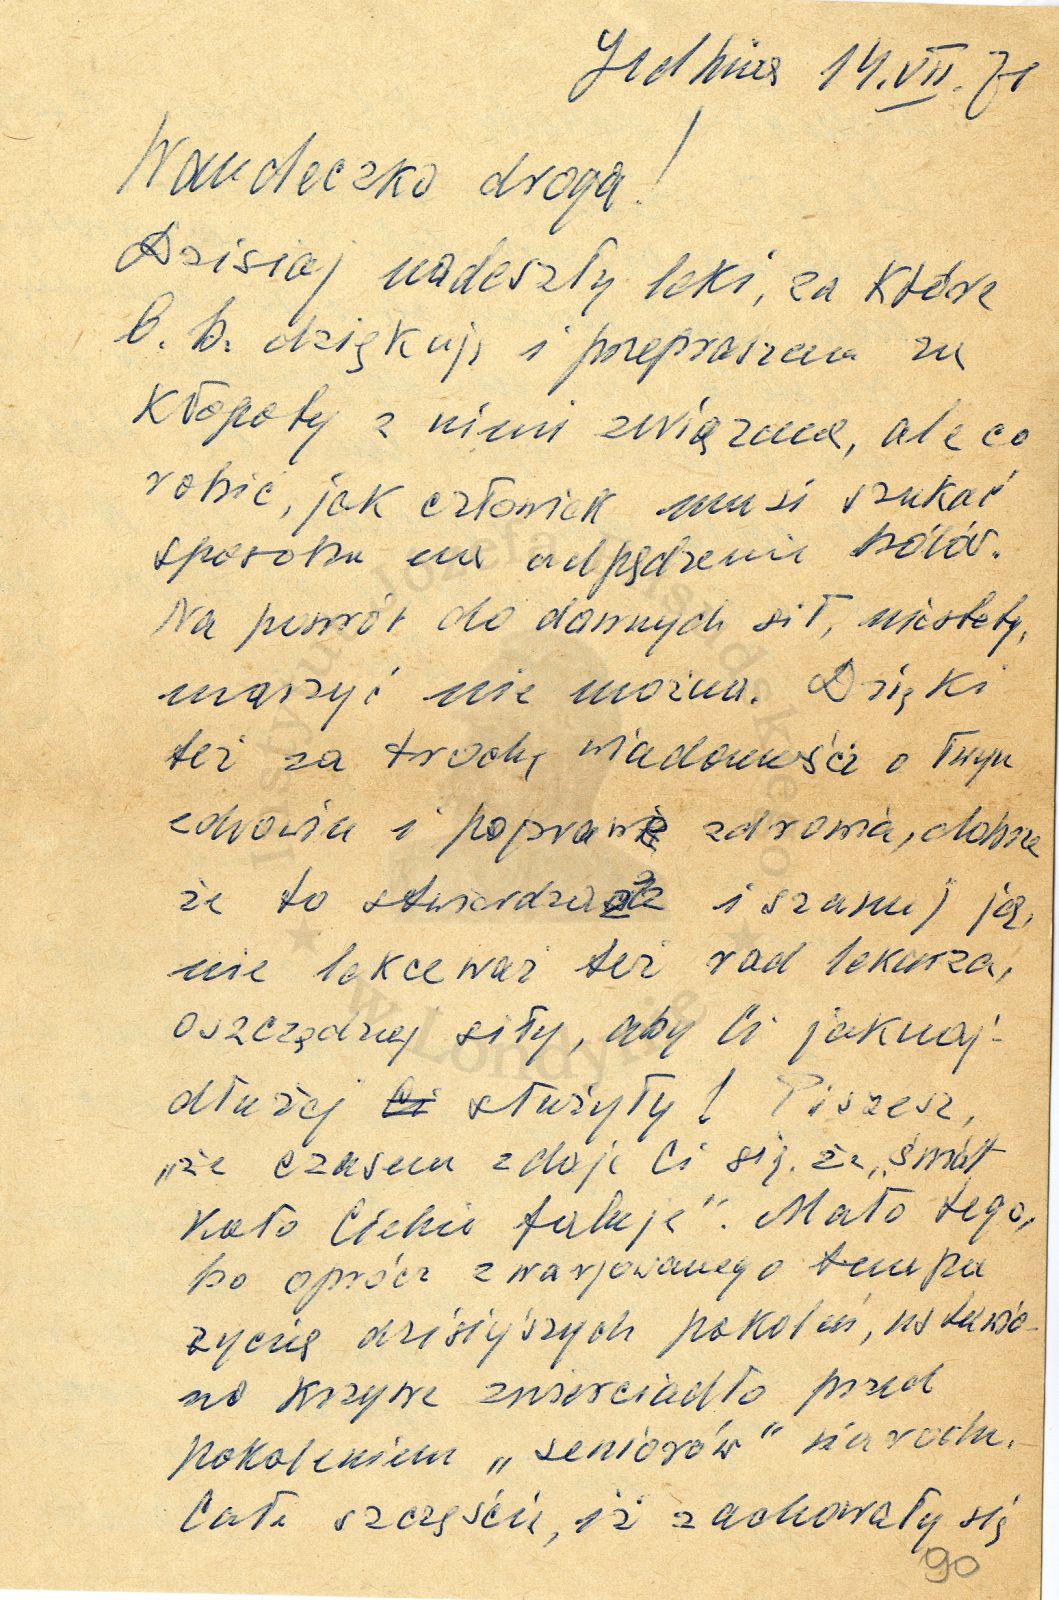 Jedlnia 14.VII.71
Wandeczko droga!
Dzisiaj nadeszły leki, za które
b. b. dziękuję i przepraszam za
kłopoty z nimi związane, ale co
robić, jak człowiek musi szukać
sposobu na odpędzenie bólów.
Na powrót do dawnych sił, niestety,
marzyć nie można. Dzięki
też za trochę wiadomości o Twym
zdrowiu i poprawie zdrowia, dobrze
że to stwierdzasz i szanuj ją,
nie lekceważ też rad lekarza,
oszczędzaj siły, aby Ci jaknaj-
dłużej służyły! Piszesz,
„że czasem zdaje Ci się, że „świat
koło Ciebie faluje". Mało tego,
bo oprócz zwarjowanego tempa
życia dzisiejszych pokoleń, ustawio-
no krzywe zwierciadło przed
pokoleniem „seniorów" narodu.
Całe szczęście, iż zachowały się
90
Instytut Józefa Piłsudskiego
w Londynie